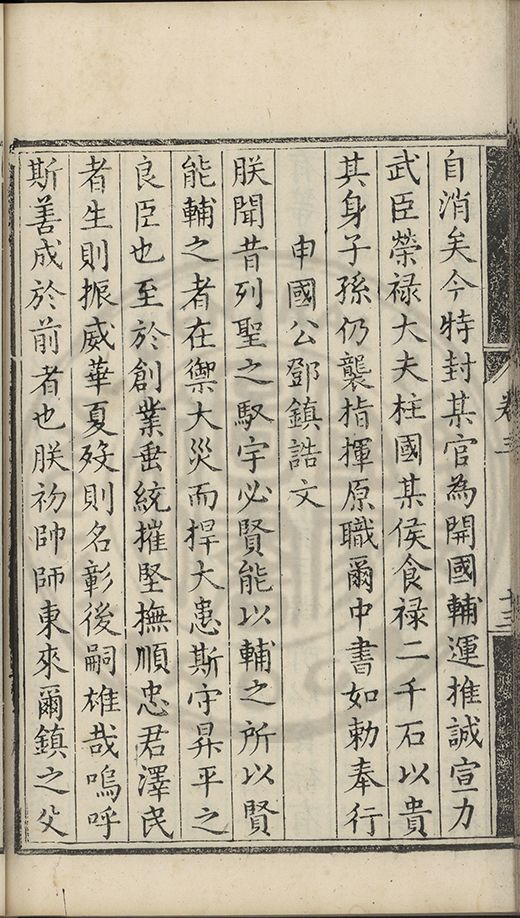 卷三
十三
自消矣今特封某官為開國輔運推誠宣力
武臣榮祿大夫柱國某侯食祿二千石以貴
其身子孫仍襲指揮原職爾中書如勅奉行
申國公鄧鎮誥文
朕聞昔列聖之馭宇必賢能以輔之所以賢
能輔之者在禦大災而捍大患斯守昇平之
良臣也至於創業垂統摧堅撫順忠君澤民
者生則振威華夏歿則名彰後嗣雄哉嗚呼
斯善成於前者也朕初帥師東來爾鎮之父